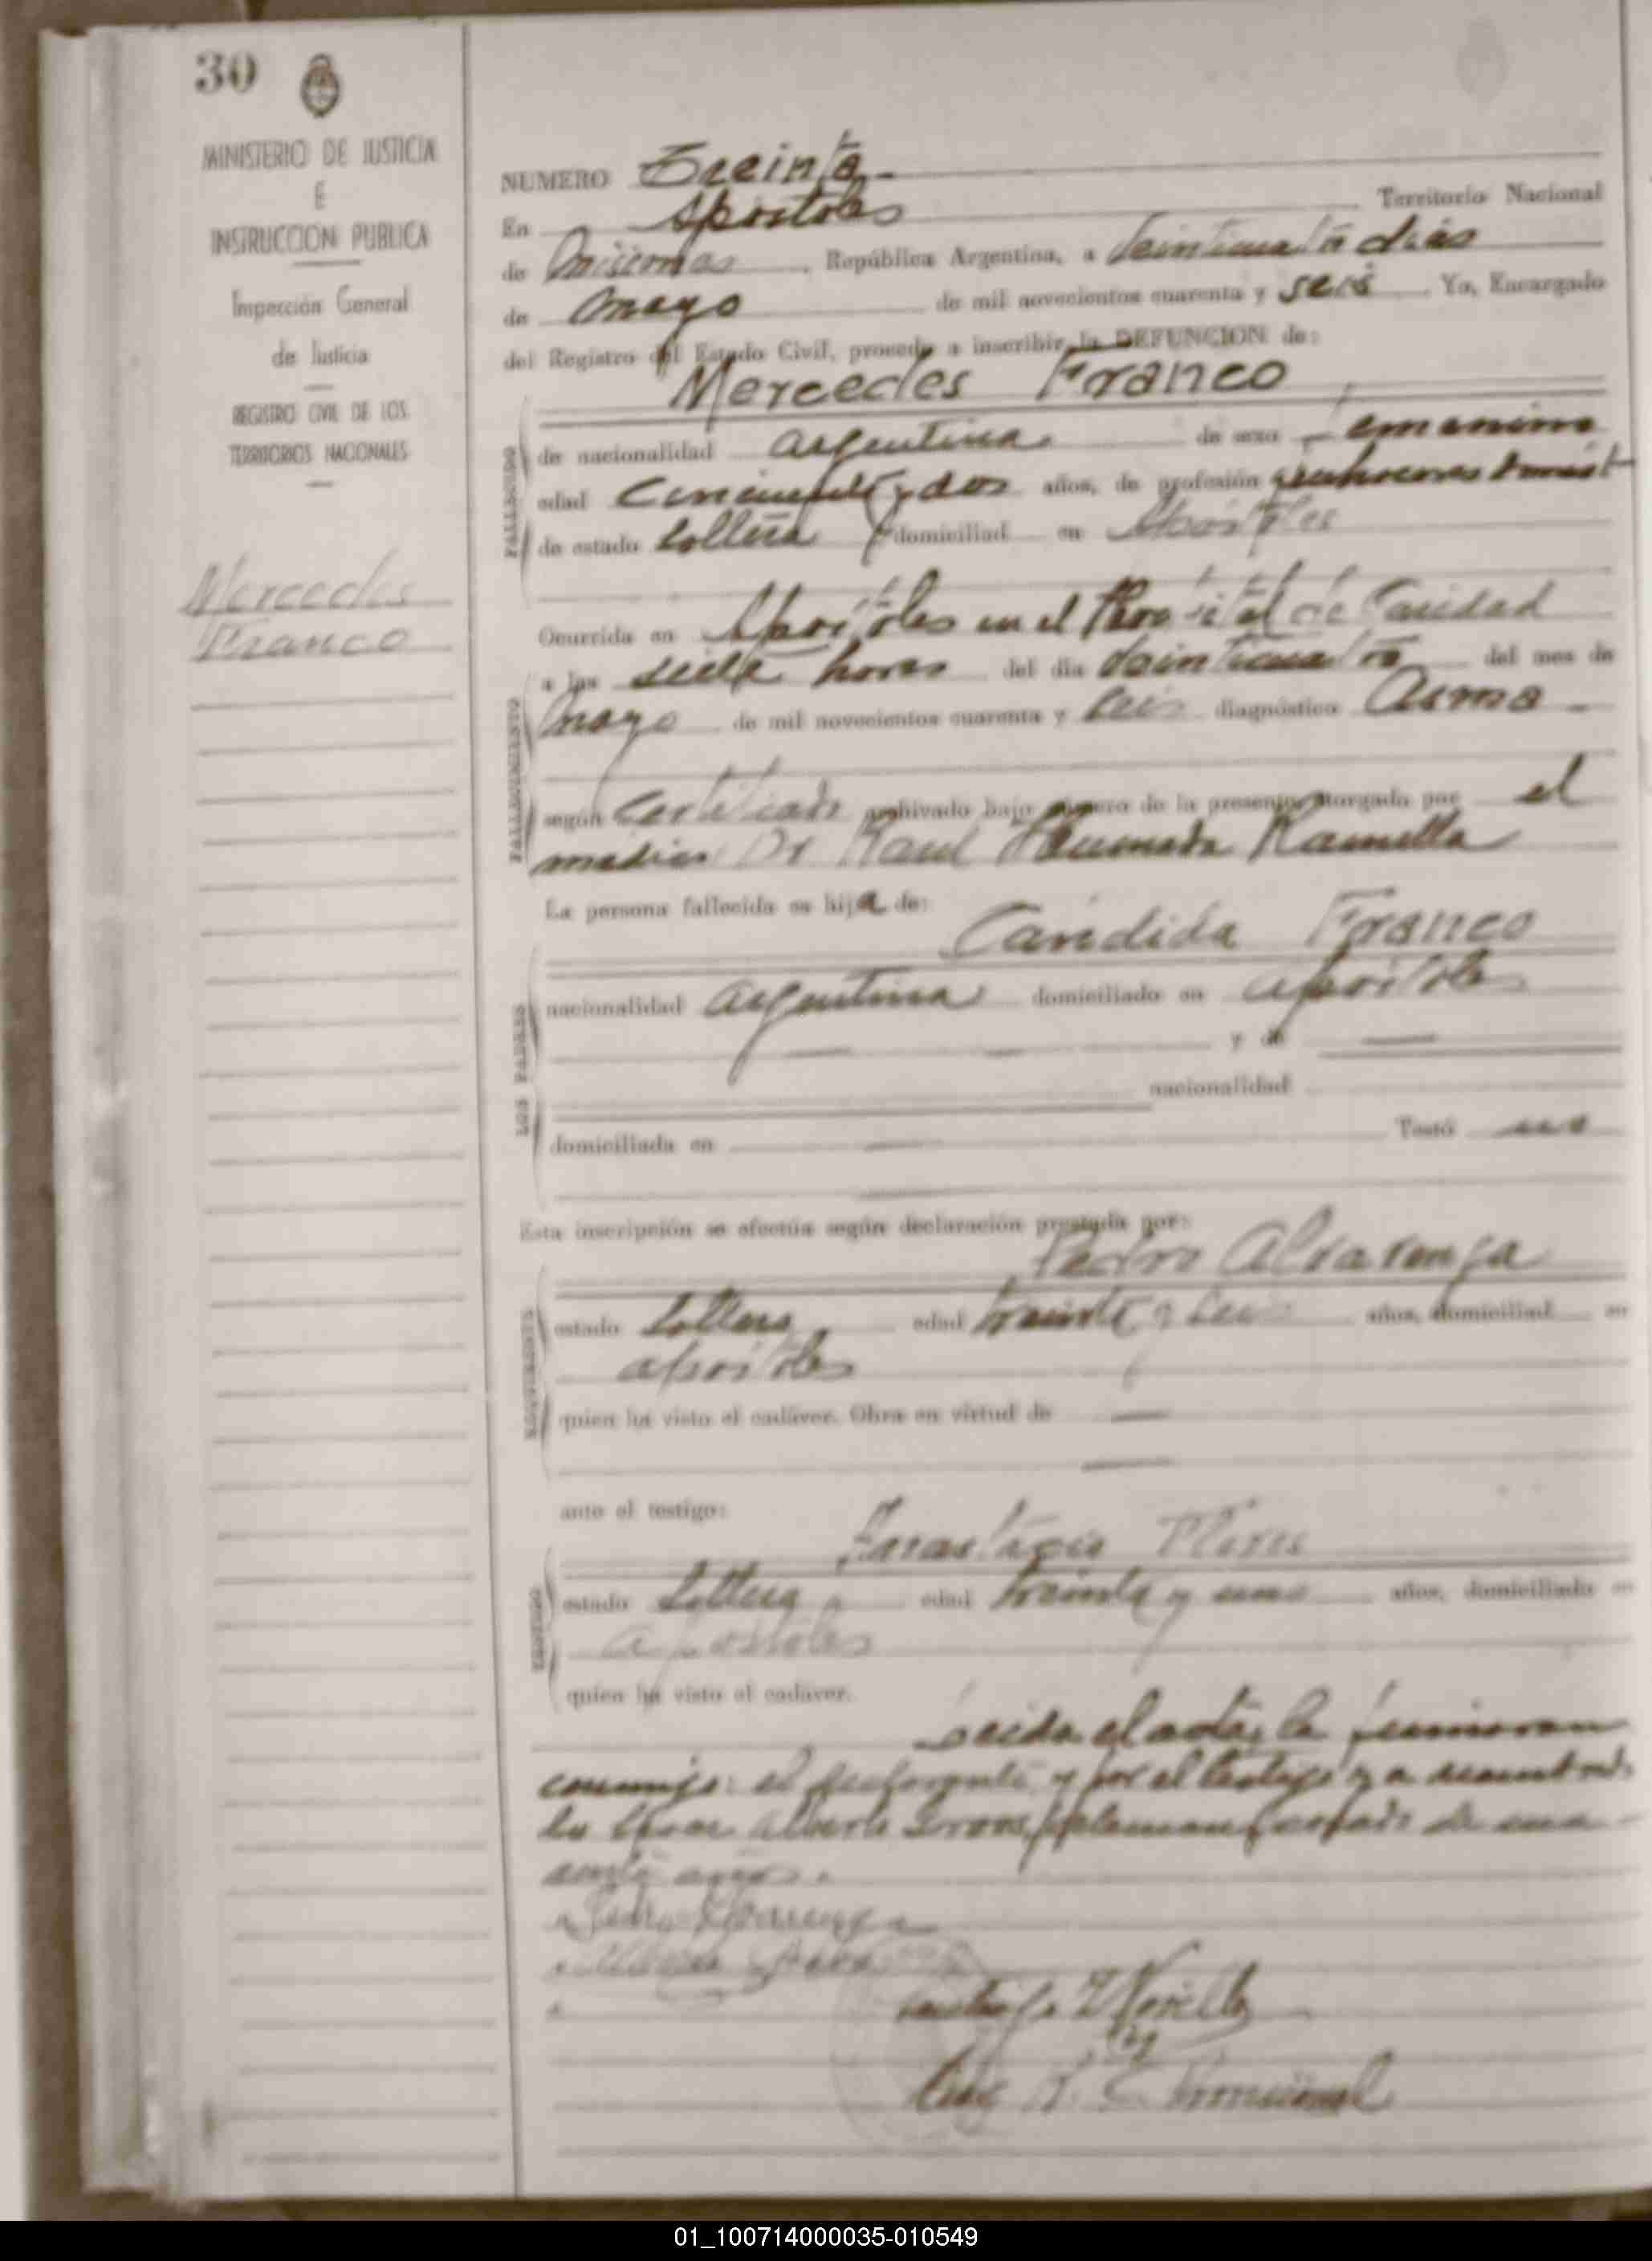 30
MINISTERIO DE JUSTICIA
E
INSTRUCCION PUBLICA
Inspección General
de Justicia
REGISTRO CIVIL DE LOS
TERRITORIOS NACIONALES
Mercedes
Franco
NUMERO Treinta
En Apostoles Territorio Nacional
de Misiones, República Argentina, a veinticuatro dias
de mayo de mil novecientos cuarenta y seis Yo, Encargado
del Registro del Estado Civil, procedo a inscribir la DEFUNCION de:
Mercedes Franco
FALLECIDO
de nacionalidad argentina de sexo femenino
edad cincuenta y dos años, de profesión quehaceres domést
de estado soltera domiciliad en Apostoles
FALLECIMIENTO
Ocurrida en Apostoles en el Hospital de Caridad
a las siete horas del día veinticuatro del mes de
mayo de mil novecientos cuarenta y seis diagnóstico Asma
según certificado archivado bajo número de la presente otorgado por el
médico Dr Raul Ahumada Ramella
La persona fallecida es hija de:
Cándida Franco
LOS PADRES
nacionalidad argentina domiciliado en apostoles
y de
nacionalidad
domiciliada en Testó
Esta inscripción se efectúa según declaración prestada por:
Pedro Alvarenga
estado soltero edad treinta y seis años, domiciliad en
apostoles
quien ha visto el cadáver. Obra en virtud de
ante el testigo:
Anastacio Flores
TESTIGO
estado soltero edad treinta y uno años, domiciliado en
apostoles
quien ha visto el cadáver.
Leida el acta, la firmaron
conmigo: el y por el testigo y a
lo Alberto aleman, casado de
años.
Pedro Alvarenga
Enc R. C. Provisional
01_100714000035-010549